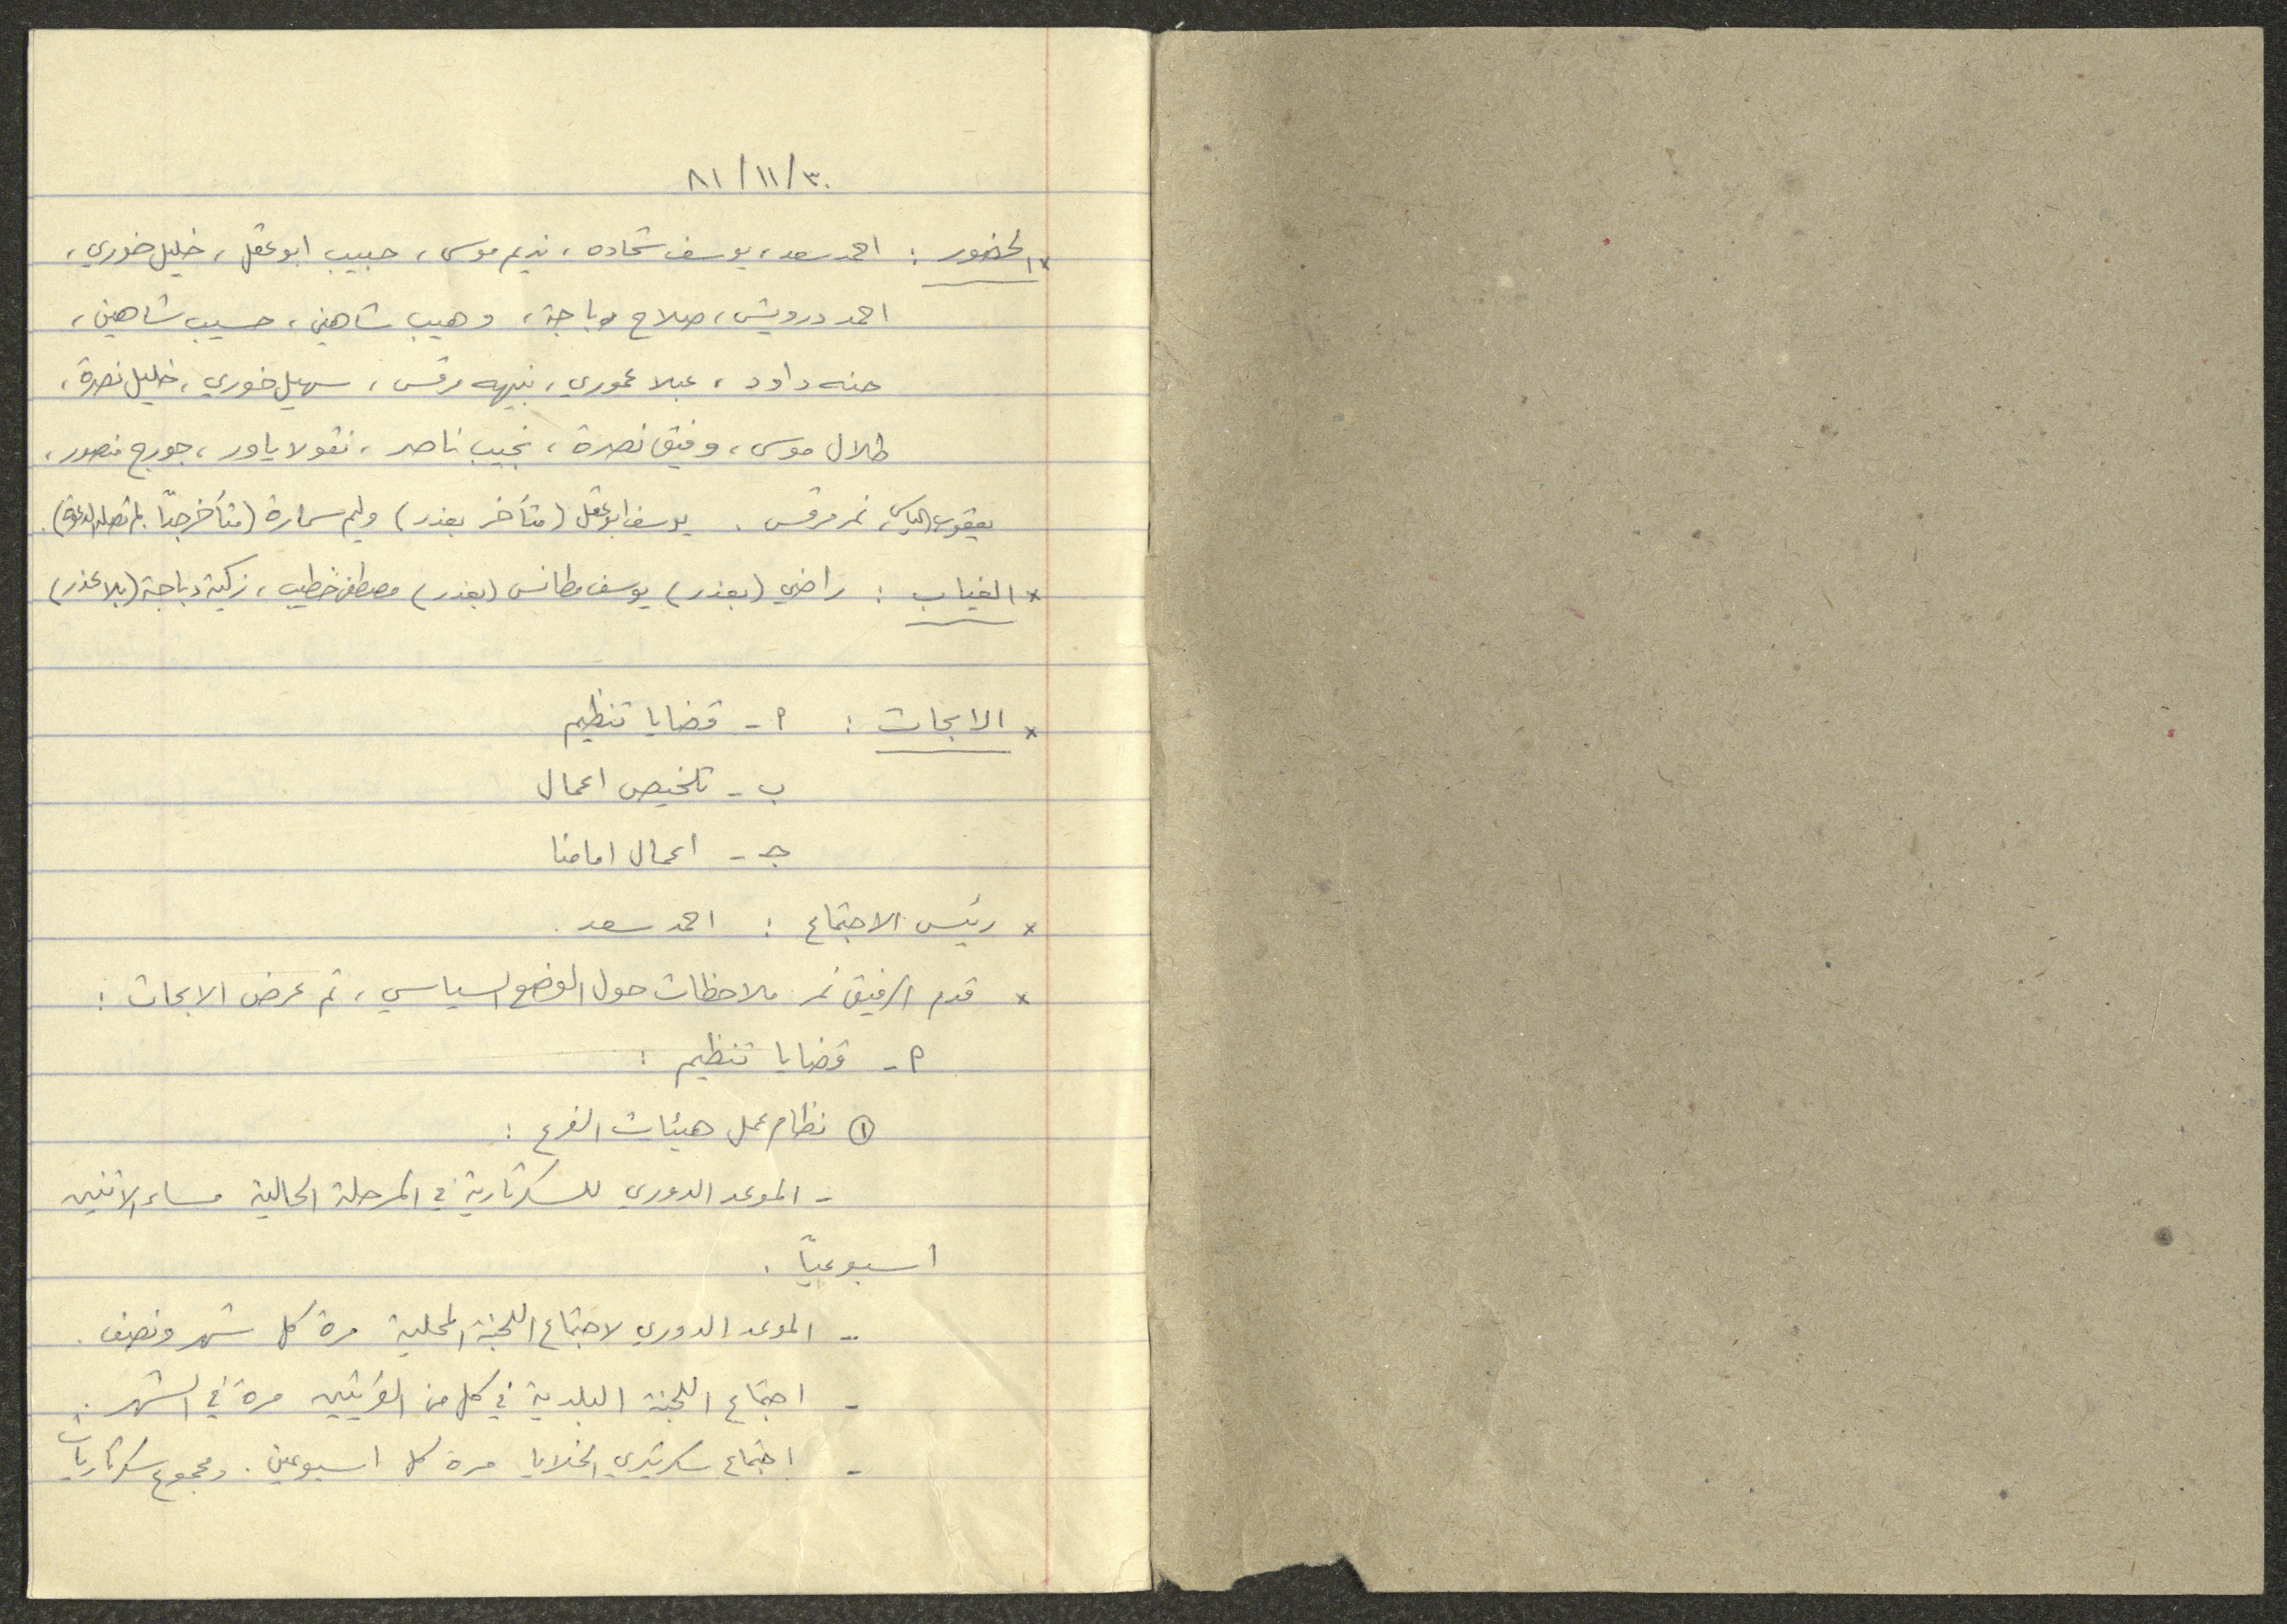 ٣٠/١١/٨١
* الحضور : احمد سعد، يوسف شحاده، نديم موسى، حبيب ابو عقل، خليل خوري،
احمد درويش، صلاح دباجة، وهيب شاهين، حسيب شاهين،
حنه داود، عبلا عموري، نبيه مرقس، سهيل خوري، خليل نصرة،
طلال موسى، وفيق نصرة، نجيب ناصر، نقولا ياور، جورج منصور،
يعقوب الياس، نمر مرقس. يوسف ابو عقل (متأخر بعذر) وليم سمارة (متأخر جدًا. لم تصله الدعوة).
* الغياب : راضي (بعذر) يوسف مطانس (بعذر) مصطفى خطيب، زكية دباجة (بلا عذر)
* الابحاث : أ - قضايا تنظيم
ب - تلخيص اعمال
جـ - اعمال امامنا
* رئيس الاجتماع : احمد سعد.
* قدم الرفيق نمر ملاحظات حول الوضع السياسي، تم عرض الابحاث :
أ - قضايا تنظيم :
① نظام عمل هيئات الفرع :
- الموعد الدوري للسكرتارية في المرحلة الحالية مساء الاثنين
اسبوعيًا.
- الموعد الدوري لاجتماع اللجنة المحلية مرة كل شهر ونصف.
- اجتماع اللجنة البلدية في كل من القريتين مرة في الشهر.
- اجتماع سكرتيري الخلايا مرة كل اسبوعين. ومجموع سكرتاريات